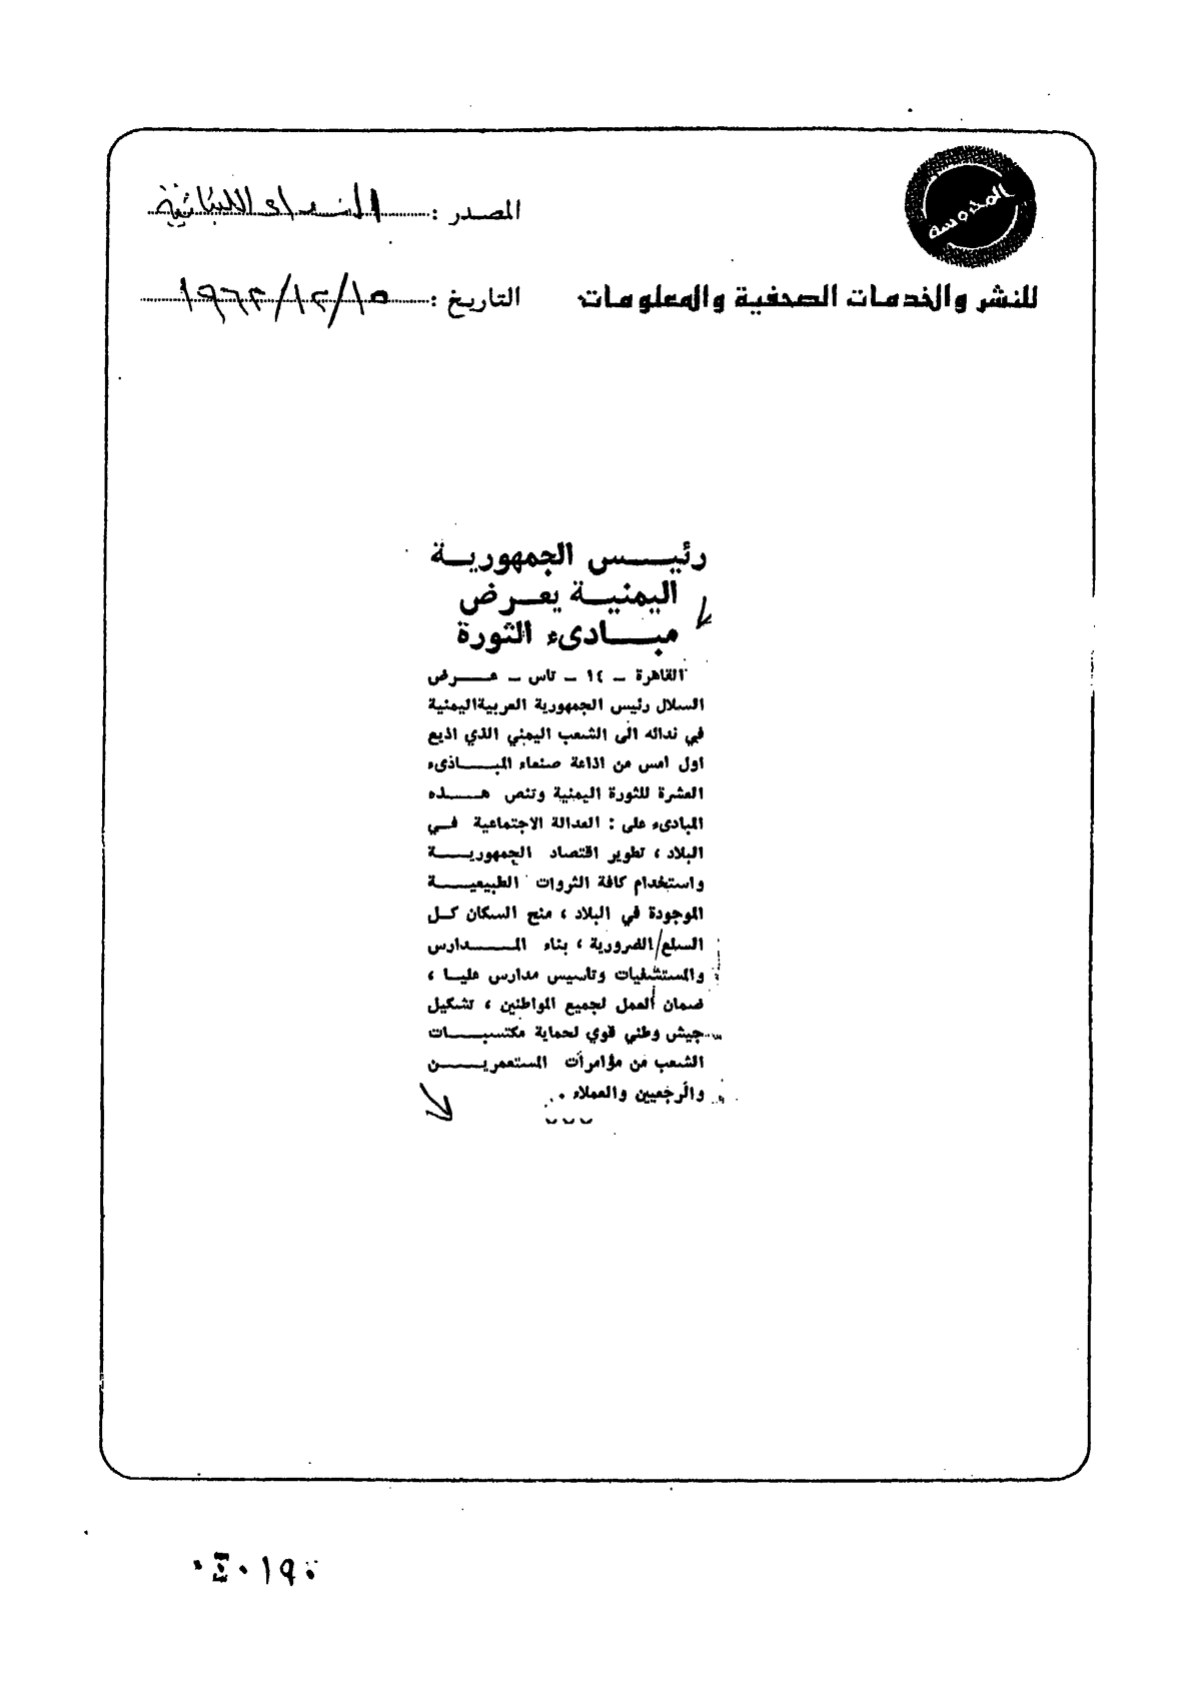 المحروسة
المصدر : النداء اللبنانية
للنشر والخدمات الصحفية والمعلومات
التاريخ : ١٩٦٢/١٢/١٥
رئيس الجمهورية
اليمنية يعرض
مبادىء الثورة
القاهرة ـ ١٤ ـ تاس ـ عرض
السلال رئيس الجمهورية العربية اليمنية
في ندائه الى الشعب اليمني الذي اذيع
اول امس من اذاعة صنعاء المبادىء
العشرة للثورة اليمنية وتنص هذه
المبادىء على : العدالة الاجتماعية في
البلاد ، تطوير اقتصاد الجمهورية
واستخدام كافة الثروات الطبيعية
الموجودة في البلاد ، منح السكان كل
السلع الضرورية ، بناء المدارس
والمستشفيات وتاسيس مدارس عليا ،
ضمان العمل لجميع المواطنين ، تشكيل
جيش وطني قوي لحماية مكتسبات
الشعب من مؤامرات المستعمرين
والرجعيين والعملاء .